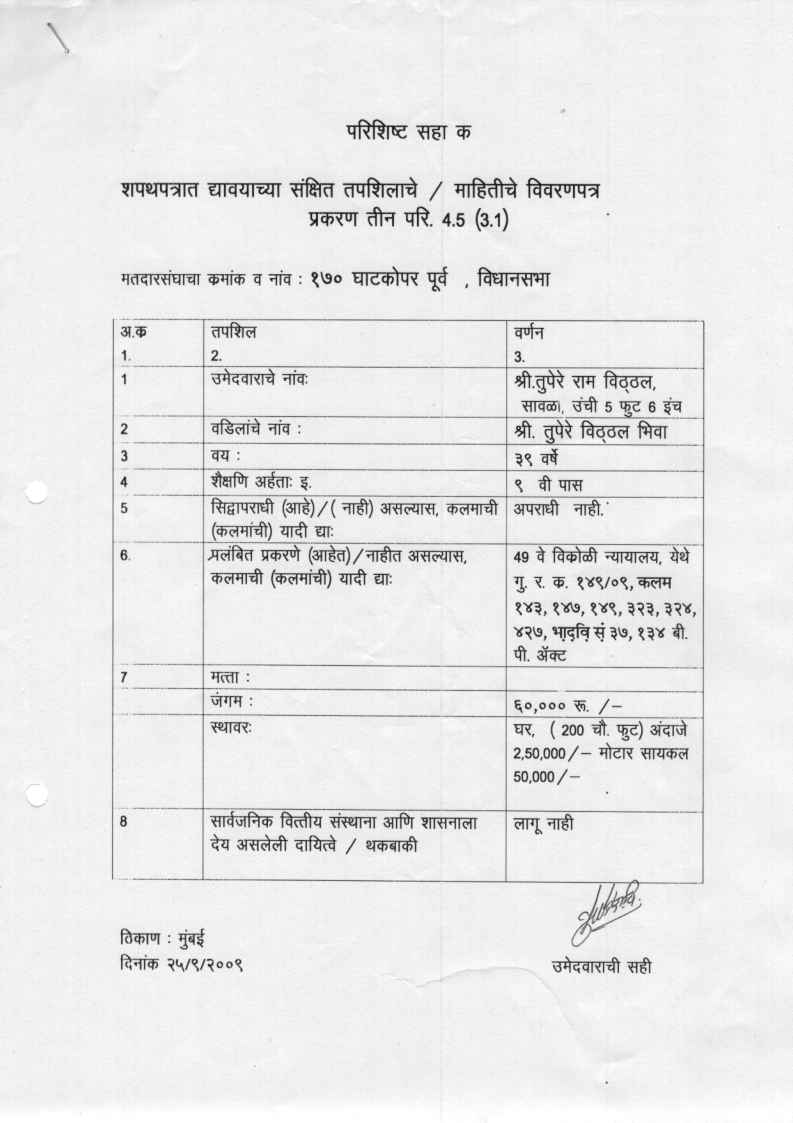 परिशिष्ट सहा क
शपथपत्रात द्यावयाच्या संक्षित तपशिलाचे / माहितीचे विवरणपत्र
प्रकरण तीन परि. 4.5 (3.1)
मतदारसंघाचा क्रमांक व नांव : १७० घाटकोपर पूर्व , विधानसभा
अ.क्र तपशिल वर्णन
1. 2. 3.
1 उमेदवाराचे नांवः श्री.तुपेरे राम विठ्ठल,
सावळा, उंची 5 फुट 6 इंच
2 वडिलांचे नांव : श्री. तुपेरे विठ्ठल भिवा
3 वय : ३९ वर्षे
4 शैक्षणि अर्हताः इ. ९ वी पास
5 सिद्वापराधी (आहे)/( नाही) असल्यास, कलमाची अपराधी नाही.
(कलमांची) यादी द्याः
6. प्रलंबित प्रकरणे (आहेत)/नाहीत असल्यास, 49 वे विक्रोळी न्यायालय, येथे
कलमाची (कलमांची) यादी द्याः गु. र. क्र. १४९/०९, कलम
१४३, १४७, १४९, ३२३, ३२४,
४२७, भादवि सं ३७, १३४ बी.
पी. ॲक्ट
7 मत्ता :
जंगम : ६०,००० रू. /–
स्थावरः घर, ( 200 चौ. फुट) अंदाजे
2,50,000/– मोटार सायकल
50,000/–
8 सार्वजनिक वित्तीय संस्थाना आणि शासनाला लागू नाही
देय असलेली दायित्वे / थकबाकी
ठिकाण : मुंबई
दिनांक २५/९/२००९ उमेदवाराची सही